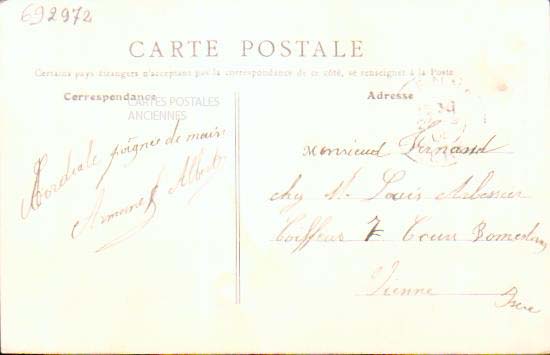 692972
CARTE POSTALE
Certains pays étrangers n'acceptant pas la correspondance de ce côté, se renseigner à la Poste
Correspondance
CARTES POSTALES
ANCIENNES
Adresse
Cordiale poignée de main
Albert
Monsieur Fernand
chez Mr Louis
Coiffeur 7 Cours Romestang
Vienne
Isère